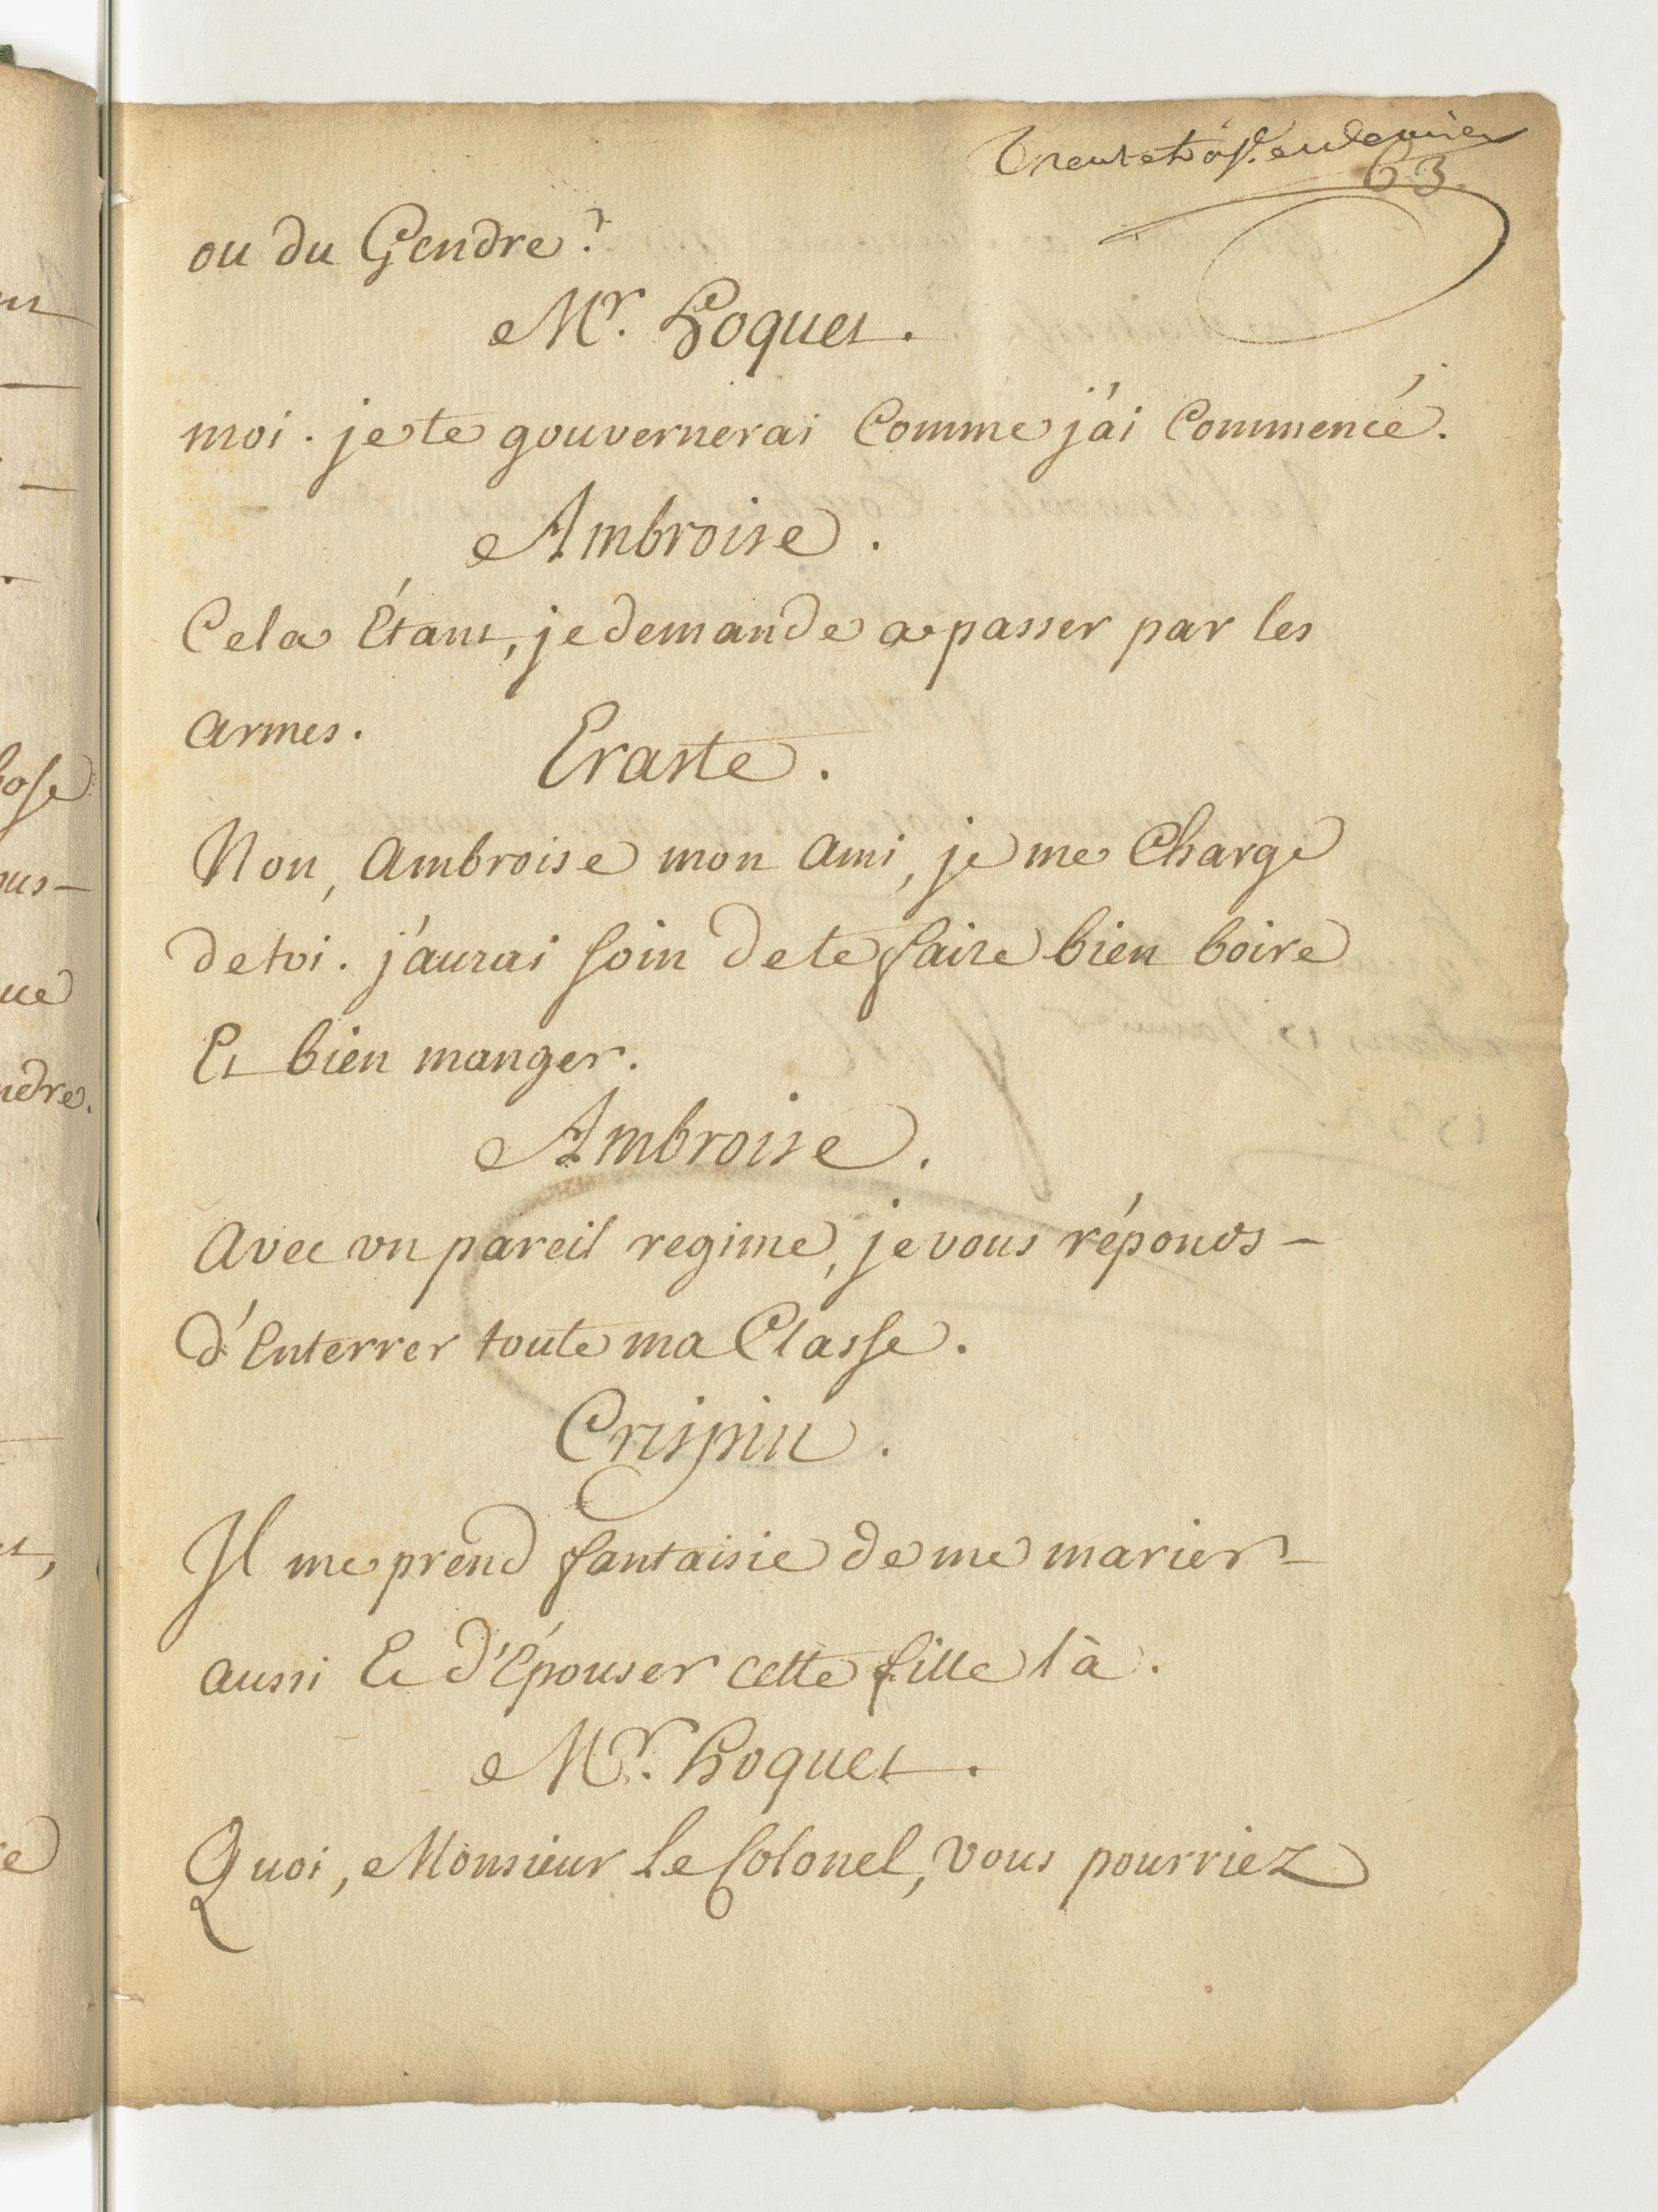 Trente trois.e et dernier
63.
ou du Gendre?
Mr. Hoquet.
moi. je te gouvernerai Comme j'ai Commencé.
Ambroise.
Cela Étant, je demande a passer par les
armes.
Eraste.
Non, Ambroise mon Ami, je me Charge
de toi. j'aurai soin de te faire bien boire
Et bien manger.
Ambroise.
Avec un pareil regime, je vous réponds -
d'Enterrer toute ma Classe.
Crispin.
Il me prend fantaisie de me marier -
aussi Et d'Épouser cette fille là.
Mr. Hoquet.
Quoi, Monsieur Le Colonel, vous pourriez